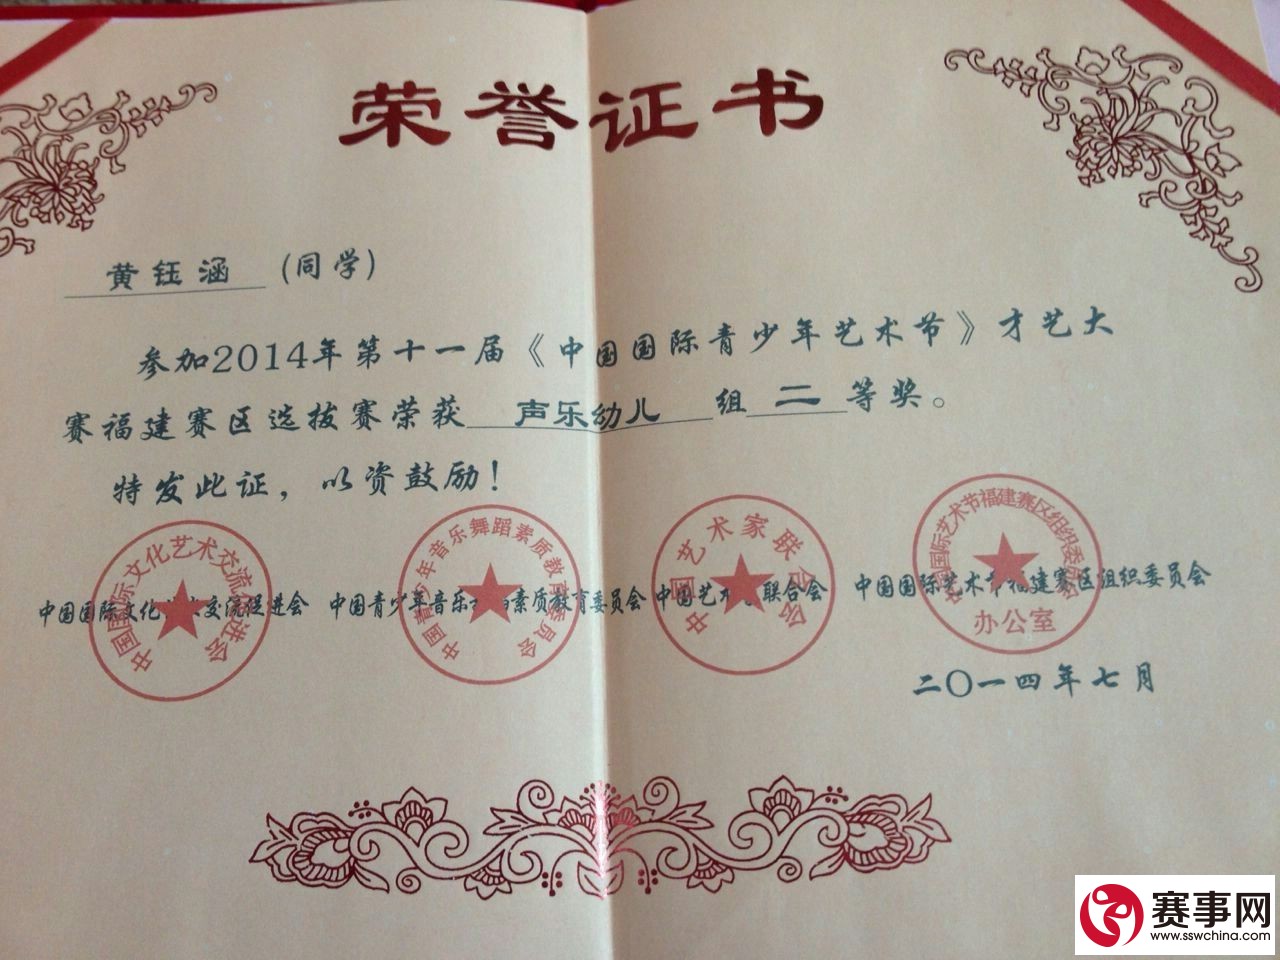 荣誉证书
黄钰涵 (同学)
参加2014年第十一届《中国国际青少年艺术节》才艺大
赛福建赛区选拔赛荣获 声乐幼儿 组 二 等奖。
特发此证，以资鼓励！
中国国际文化艺术交流促进会
中国青少年音乐舞蹈素质教育委员会
中国艺术家联合会
中国国际艺术节福建赛区组织委员会
办公室
中国国际文化艺术交流促进会 中国青少年音乐舞蹈素质教育委员会 中国艺术家联合会 中国国际艺术节福建赛区组织委员会
二〇一四年七月
赛事网
www.sswchina.com